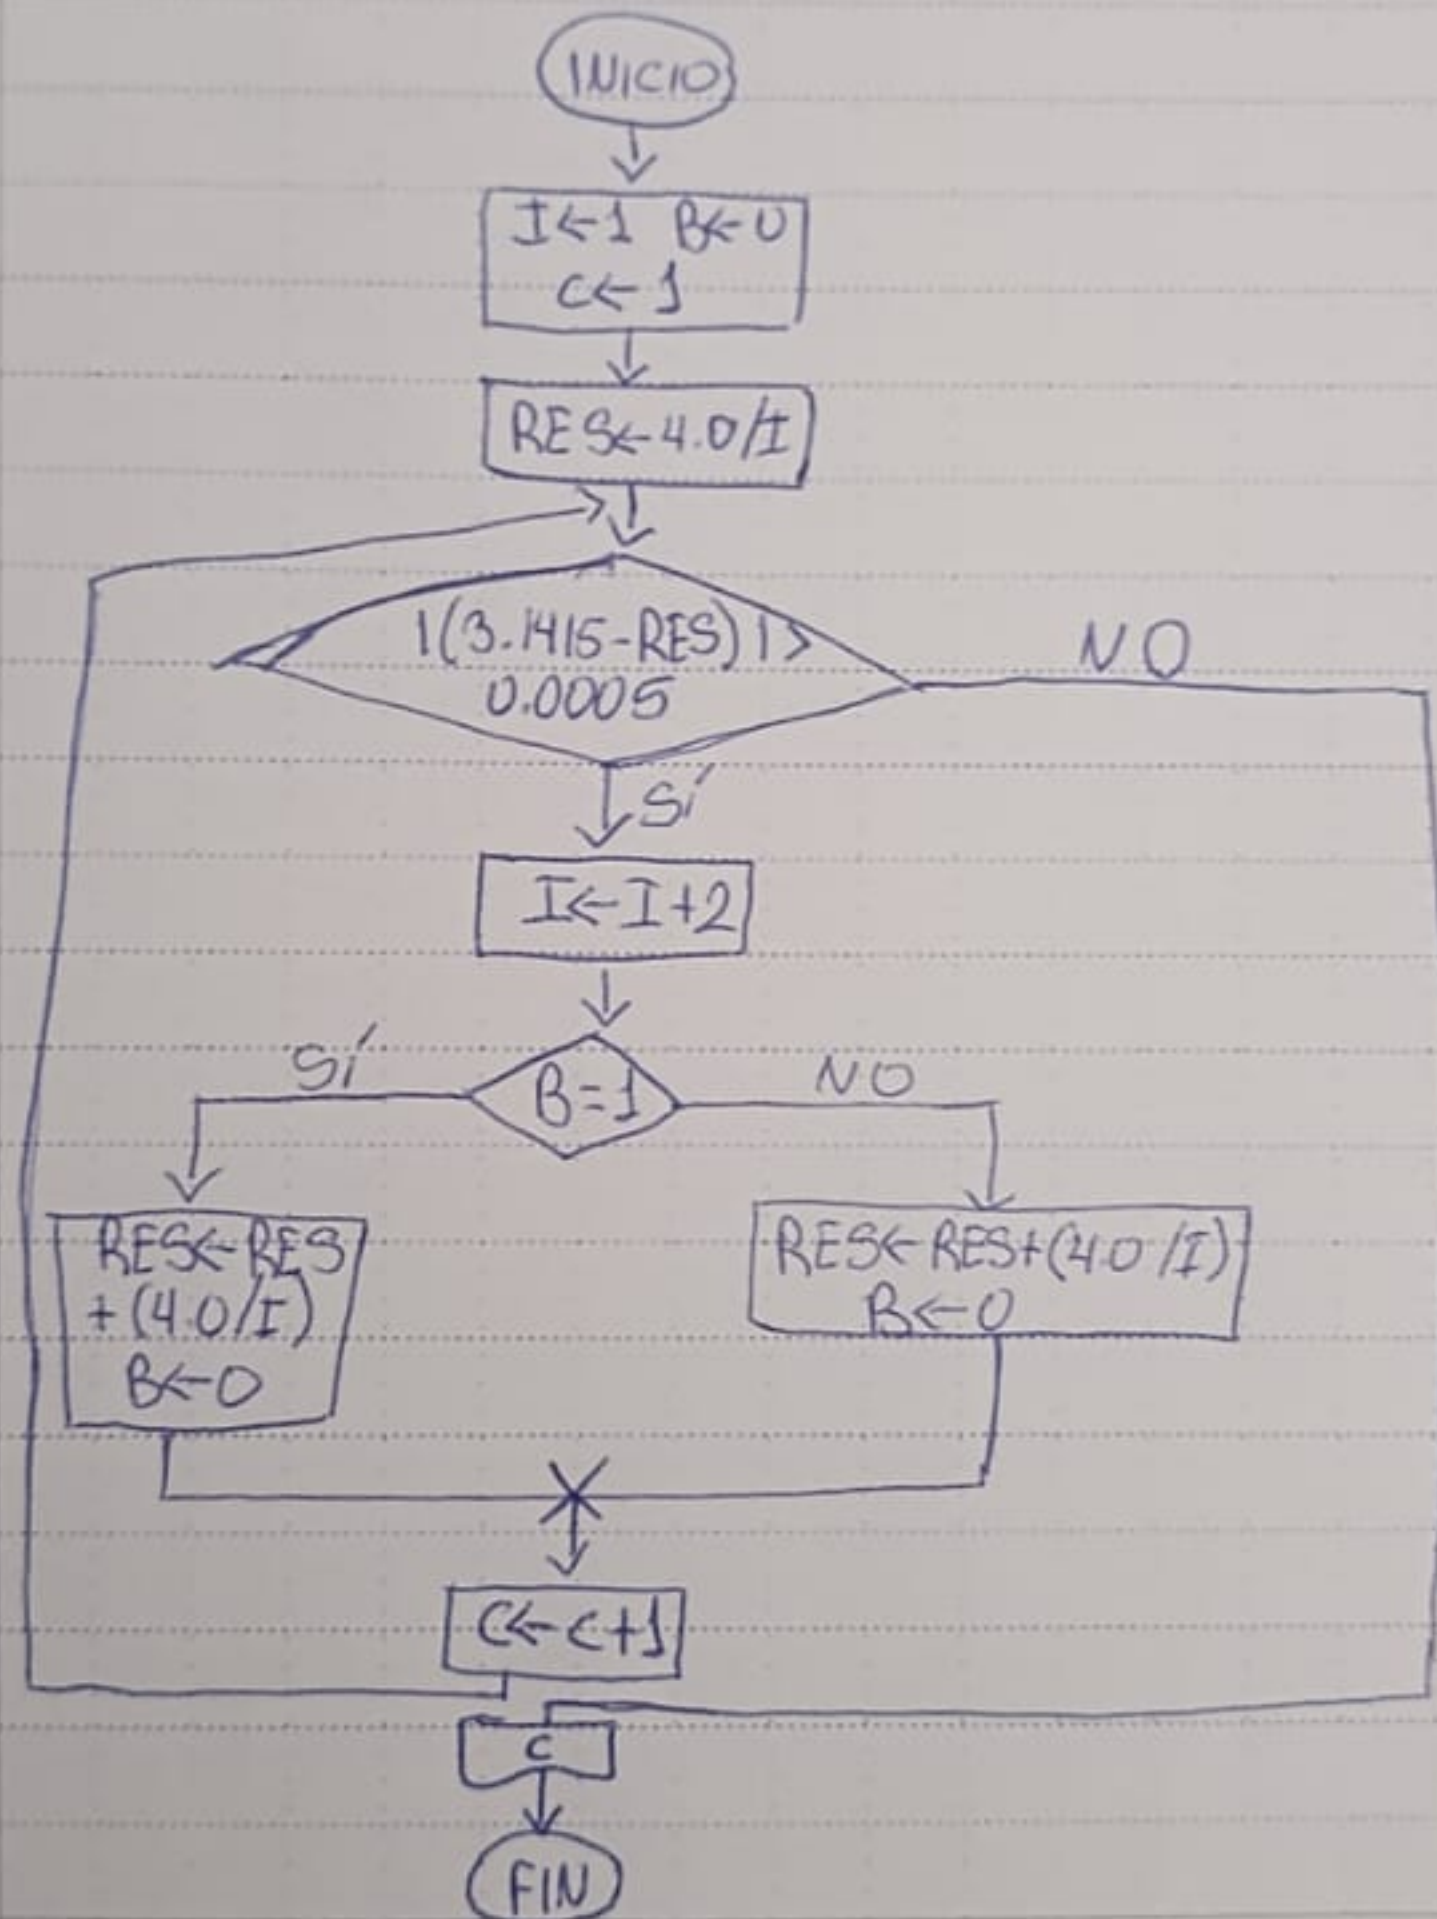 INICIO
I←1 B←0
C←1
RES←4.0/I
|(3.1415-RES)|>
0.0005
NO
SÍ
I←I+2
B=1
SÍ
NO
RES←RES
+(4.0/I)
B←0
RES←RES+(4.0/I)
B←0
C←C+1
C
FIN